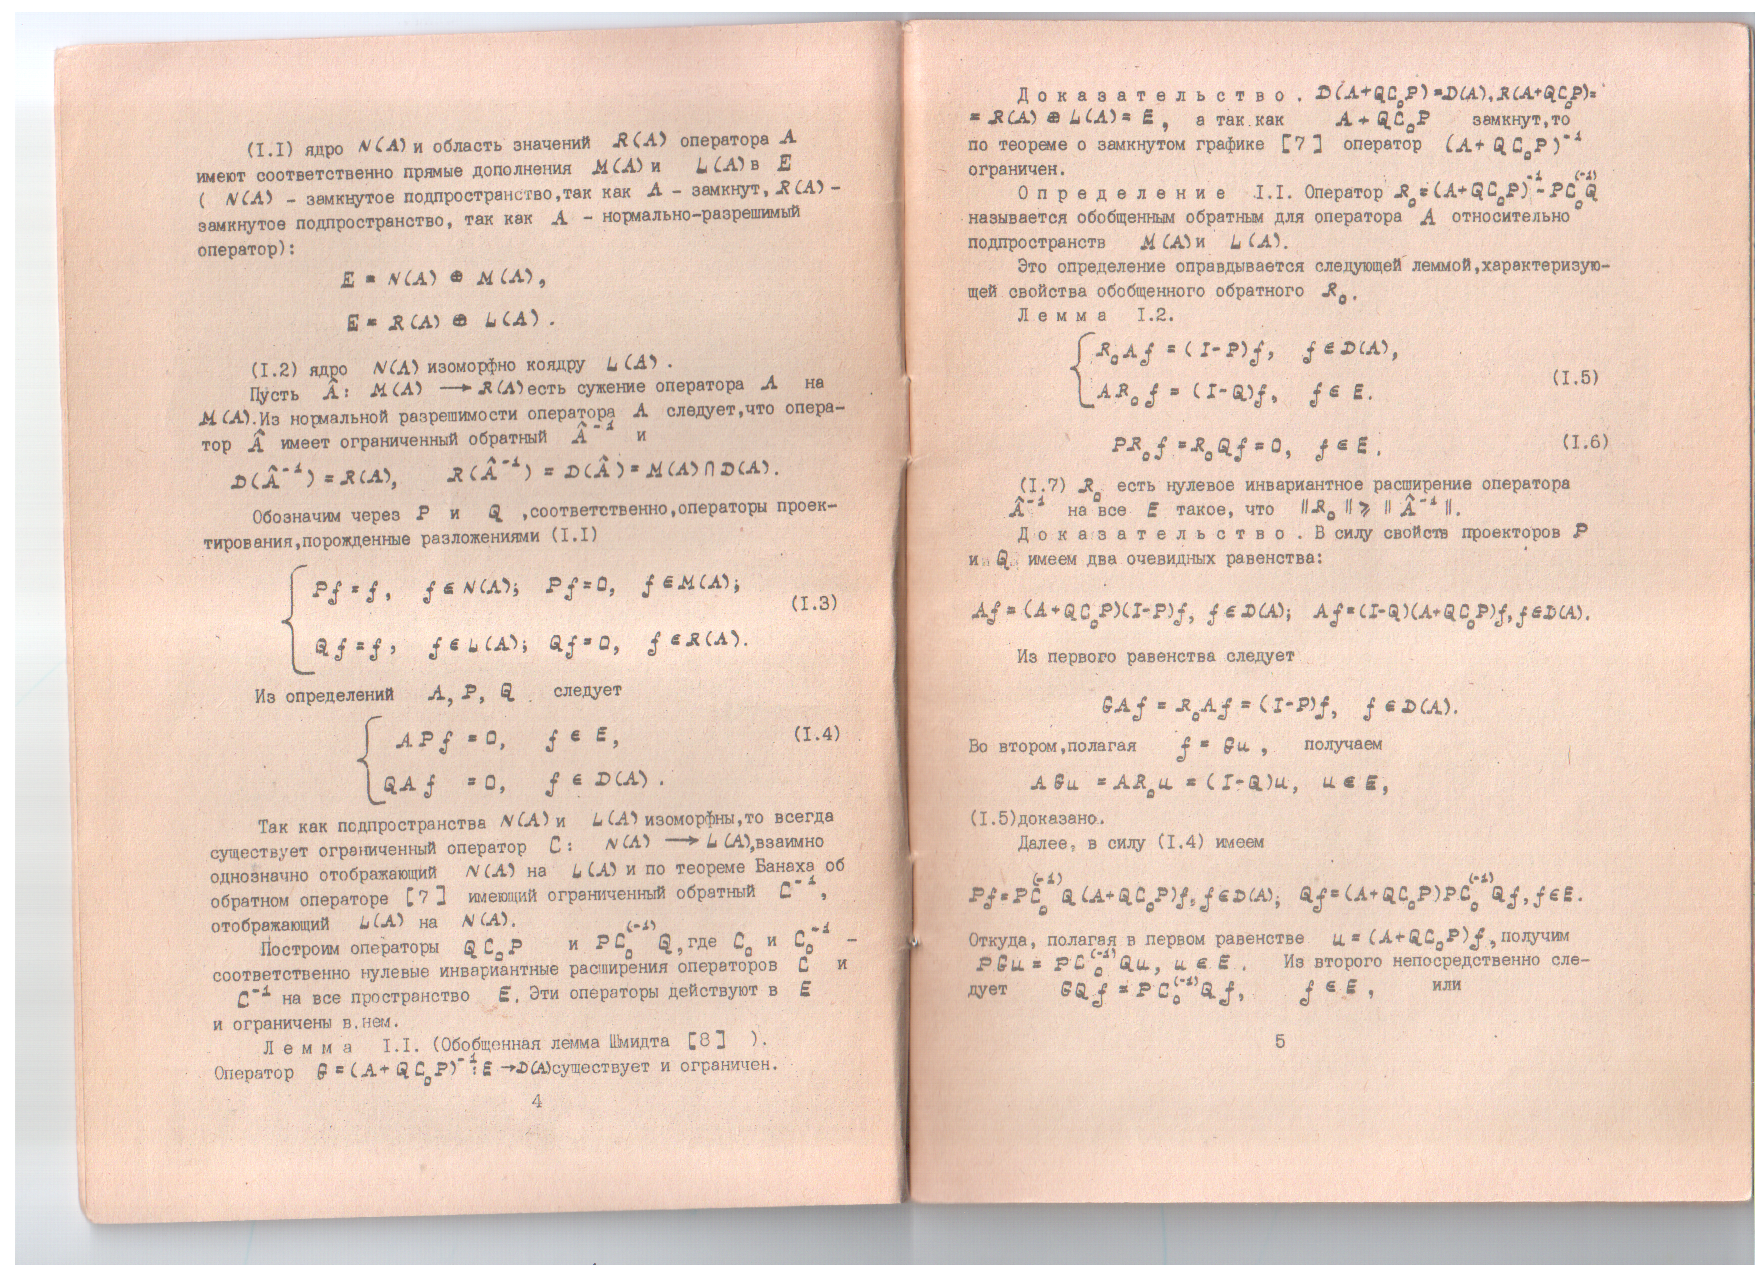 (I.I) ядро N(A) и область значений R(A) оператора A
имеют соответственно прямые дополнения M(A) и L(A) в E
( N(A) - замкнутое подпространство,так как A - замкнут, R(A) -
замкнутое подпространство, так как A - нормально-разрешимый
оператор):
E = N(A) ⊕ M(A),
E = R(A) ⊕ L(A) .
(I.2) ядро N(A) изоморфно коядру L(A) .
Пусть Â: M(A) ⟶ R(A) есть сужение оператора A на
M(A).Из нормальной разрешимости оператора A следует,что опера-
тор Â имеет ограниченный обратный Â⁻¹ и
D(Â⁻¹) = R(A), R(Â⁻¹) = D(Â) = M(A)∩D(A).
Обозначим через P и Q ,соответственно,операторы проек-
тирования,порожденные разложениями (I.I)
Pf = f, f ∈ N(A); Pf = 0, f ∈ M(A);
(I.3)
Qf = f, f ∈ L(A); Qf = 0, f ∈ R(A).
Из определений A, P, Q следует
APf = 0, f ∈ E, (I.4)
QAf = 0, f ∈ D(A) .
Так как подпространства N(A) и L(A) изоморфны,то всегда
существует ограниченный оператор C: N(A) ⟶ L(A),взаимно
однозначно отображающий N(A) на L(A) и по теореме Банаха об
обратном операторе [7] имеющий ограниченный обратный C⁻¹,
отображающий L(A) на N(A).
Построим операторы QC₀P и PC₀⁽⁻¹⁾Q,где C₀ и C₀⁻¹ -
соответственно нулевые инвариантные расширения операторов C и
C⁻¹ на все пространство E. Эти операторы действуют в E
и ограничены в.нем.
Лемма I.I. (Обобщенная лемма Шмидта [8] ).
Оператор G = (A+QC₀P)⁻¹: E → D(A)существует и ограничен.
4
Доказательство. D(A+QC₀P)=D(A), R(A+QC₀P)=
= R(A) ⊕ L(A) = E, а так как A + QC₀P замкнут,то
по теореме о замкнутом графике [7] оператор (A + QC₀P)⁻¹
ограничен.
Определение I.I. Оператор R₀=(A+QC₀P)⁻¹-PC₀⁽⁻¹⁾Q
называется обобщенным обратным для оператора A относительно
подпространств M(A) и L(A).
Это определение оправдывается следующей леммой,характеризую-
щей свойства обобщенного обратного R₀.
Лемма I.2.
R₀Af = (I-P)f, f ∈ D(A),
(I.5)
AR₀f = (I-Q)f, f ∈ E.
PR₀f = R₀Qf = 0, f ∈ E. (I.6)
(I.7) R₀ есть нулевое инвариантное расширение оператора
Â⁻¹ на все E такое, что ‖R₀‖ ⩾ ‖Â⁻¹‖.
Доказательство. В силу свойств проекторов P
и Q имеем два очевидных равенства:
Af = (A+QC₀P)(I-P)f, f ∈ D(A); Af=(I-Q)(A+QC₀P)f, f∈D(A).
Из первого равенства следует
GAf = R₀Af = (I-P)f, f ∈ D(A).
Во втором,полагая f = Gu, получаем
AGu = AR₀u = (I-Q)u, u ∈ E,
(I.5)доказано.
Далее, в силу (I.4) имеем
Pf=PC₀⁽⁻¹⁾Q(A+QC₀P)f, f∈D(A); Qf=(A+QC₀P)PC₀⁽⁻¹⁾Qf, f∈E.
Откуда, полагая в первом равенстве u = (A+QC₀P)f,получим
PGu = PC₀⁽⁻¹⁾Qu, u ∈ E. Из второго непосредственно сле-
дует GQf = PC₀⁽⁻¹⁾Qf, f ∈ E, или
5